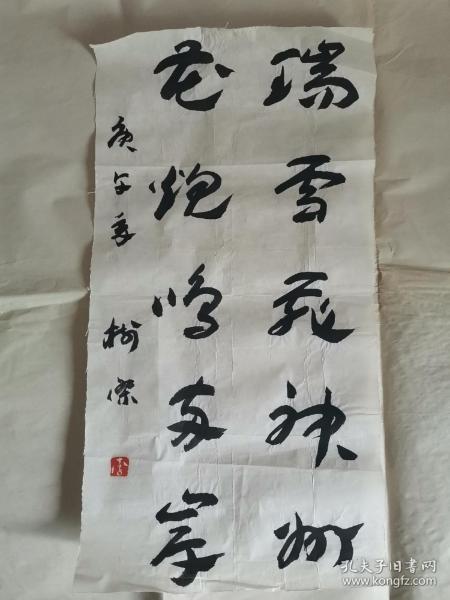 瑞雪飛神州
花炮鳴两岸
庚午季
樹傑
孔夫子旧书网
www.kongfz.com